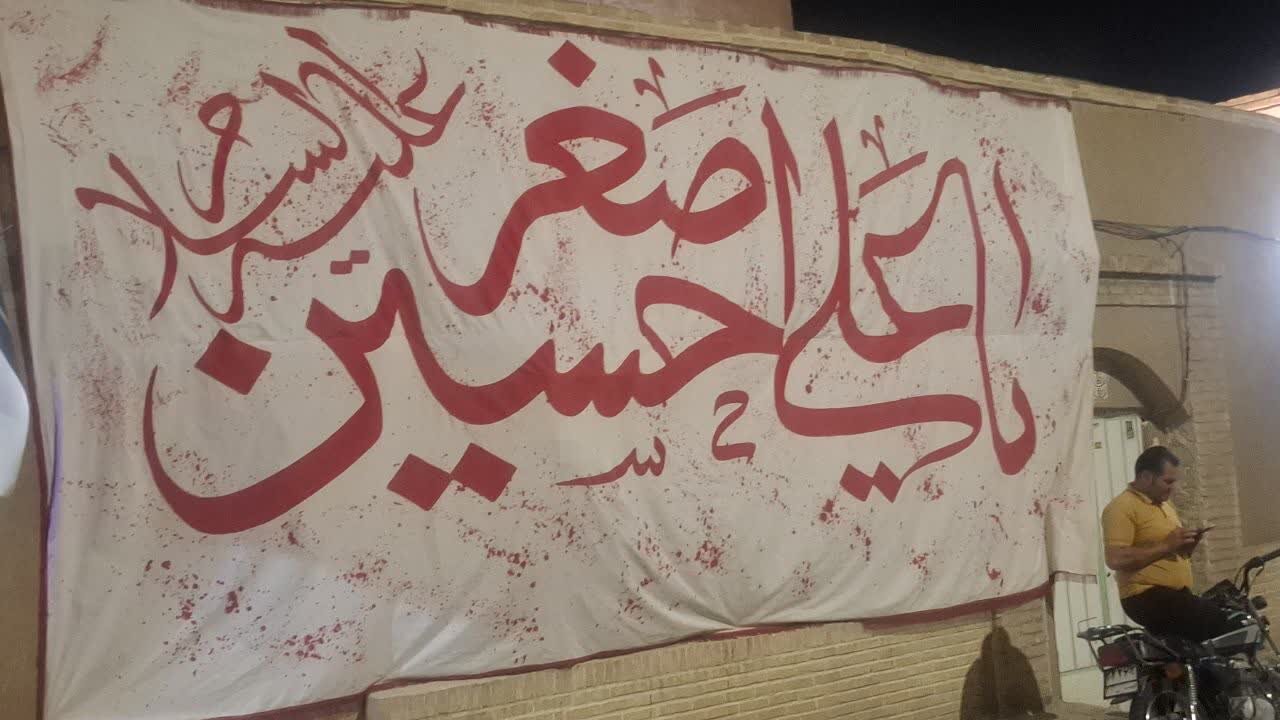 یا علی اصغر
حسین
علیه السلام